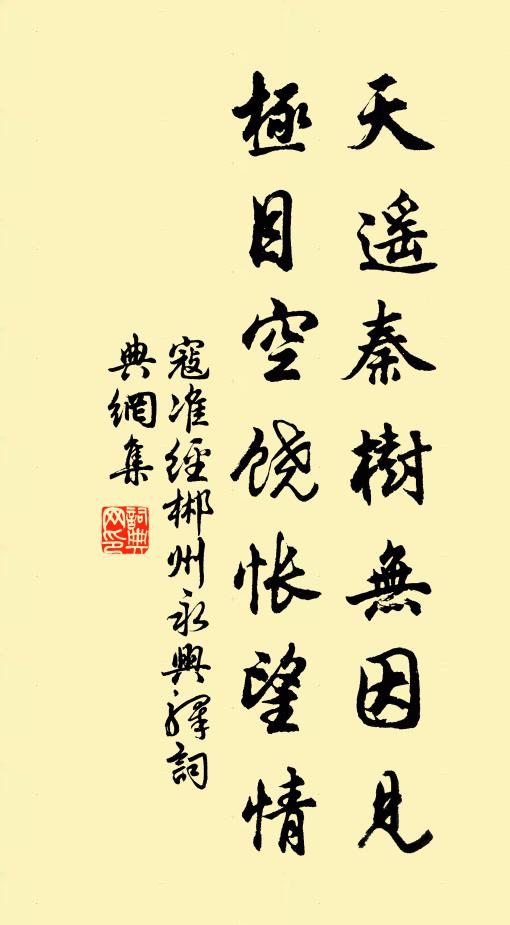 天遥秦樹無因見
極目空饶怅望情
寇准經郴州永興驛詞
典網集
詞典
网印